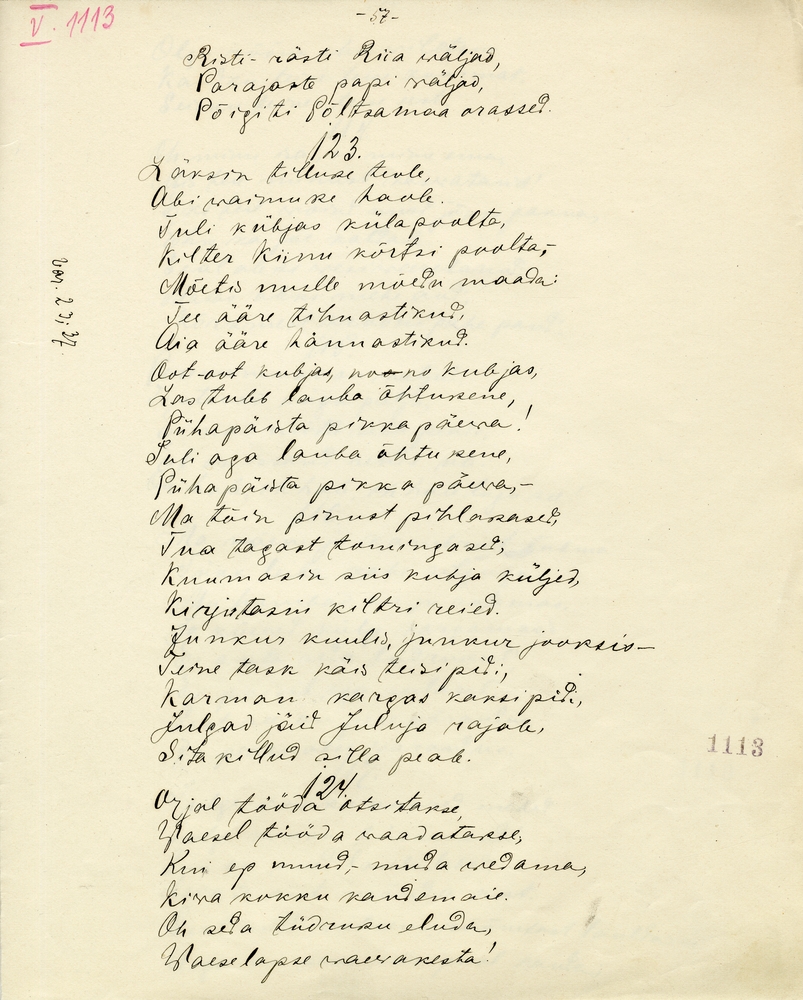 V. 1113
-57-
Risti-rästi Riia wäljad,
Parajaste papi wäljad,
Põigiti Põltsamaa orassed.
123.
Läksin tilluse teole,
Abi waimuke haole.
Tuli kübjas külapoolta,
Kilter Kiinu kõrtsi poolta,-
Mõetis mulle mõedu maada:
Tee ääre tihnastikud,
Aia ääre hännastikud.
Oot-oot kubjas, no no kubjas,
Las tuleb lauba õhtukene,
Pühapäista pikka päewa!
Tuli aga lauba õhtukene,
Pühapäista pikka päewa,-
Ma tõin pinust pihlakased,
Tua tagast tomingased,
Kuumasin siis kubja küljed,
Kirjutasin kiltri reied.
Junkur kuulis, junkur jooksis-
Teine task käis teisi pidi,
Karman kargas kaksipidi,
Julgad jäid Juluja rajale,
Sita killud silla peale.
124.
Orjal tööda otsitakse,
Waesel tööda waadatakse,
Kui ep muud,- muda wedama,
Kiwa kokku kandemaie.
Oh seda tüdruku eludu,
Waeselapse waewakesta!
var. 27; 37.
1113